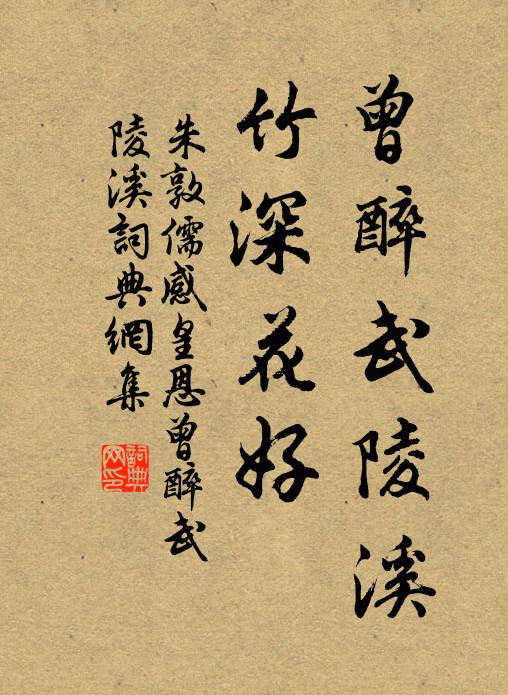 曾醉武陵溪
竹深花好
朱敦儒感皇恩曾醉武
陵溪詞典網集
詞典
网印